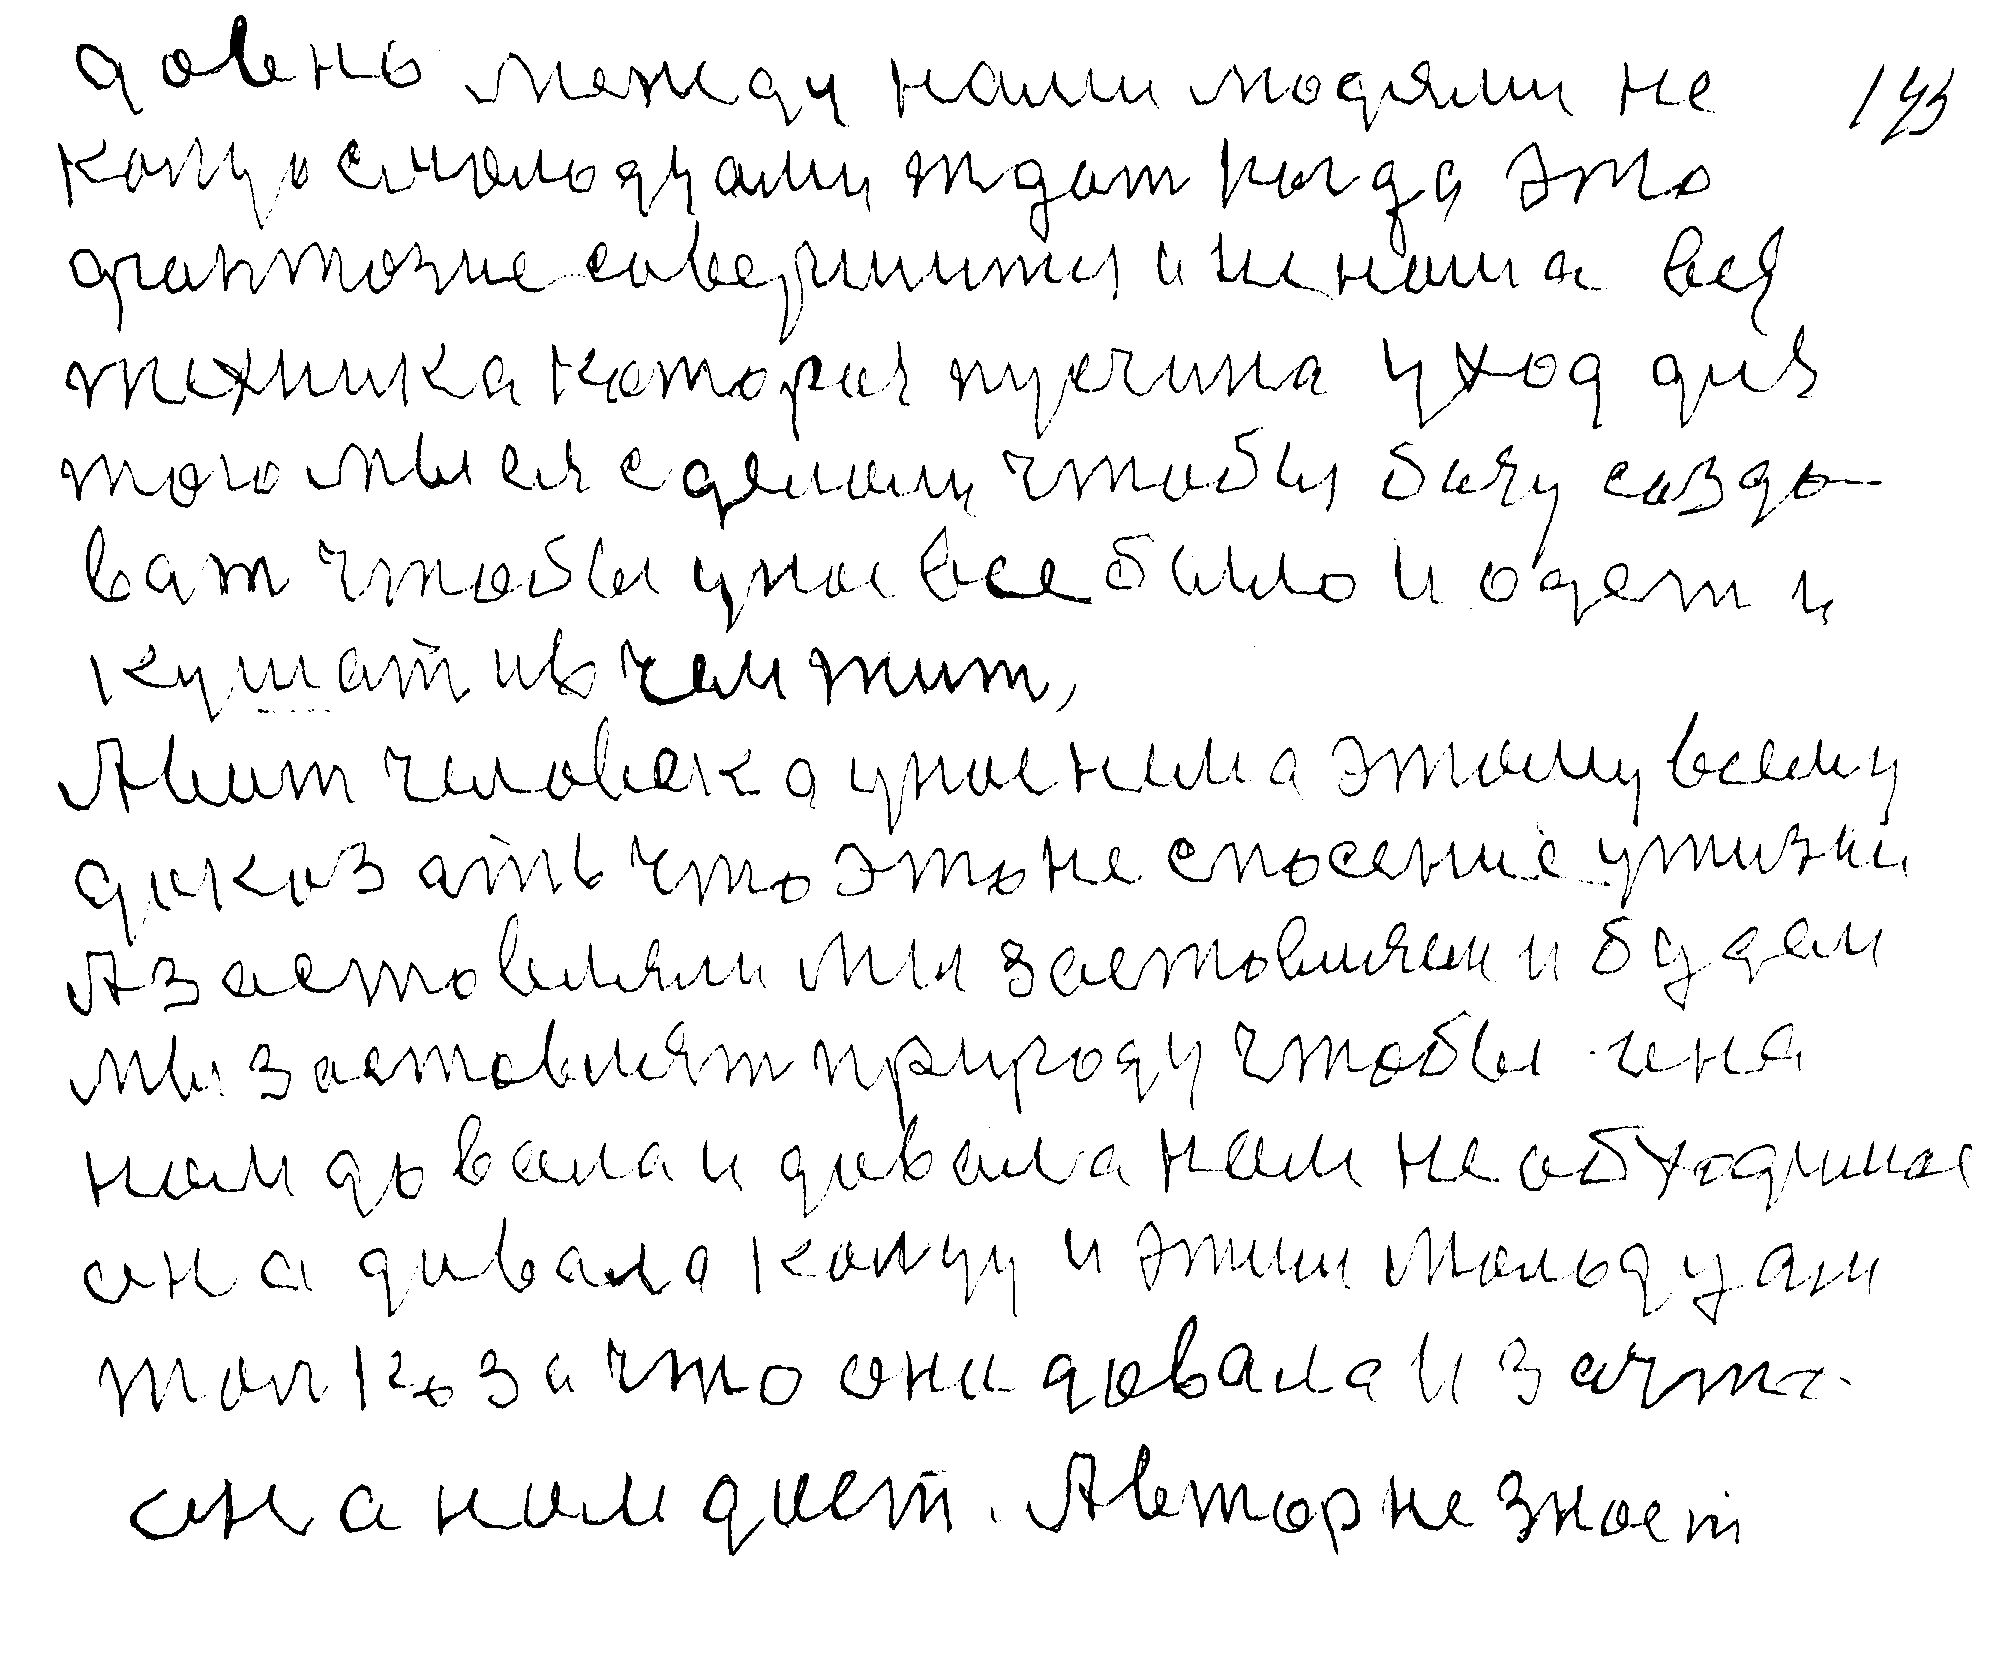 довнь между нами людями не 143
капуосмольдуами ждат когда это
фантозие совершится и не наша вся
техника которая пущина уход для
того мыся сделали чтобы базу созда-
ват чтобы унас все было и одет и
кушат ив чем жит,
Авит человек а унас нема этому всему
доказать что это не спосение ужизни
А заставляли мы заставляем и будем
мы заставлят природу чтобы она
нам довала и довала нам необходимое
она давала капцу и этим мольдуам
толко за что она довала и зачто
она нам дает. Автор не знает